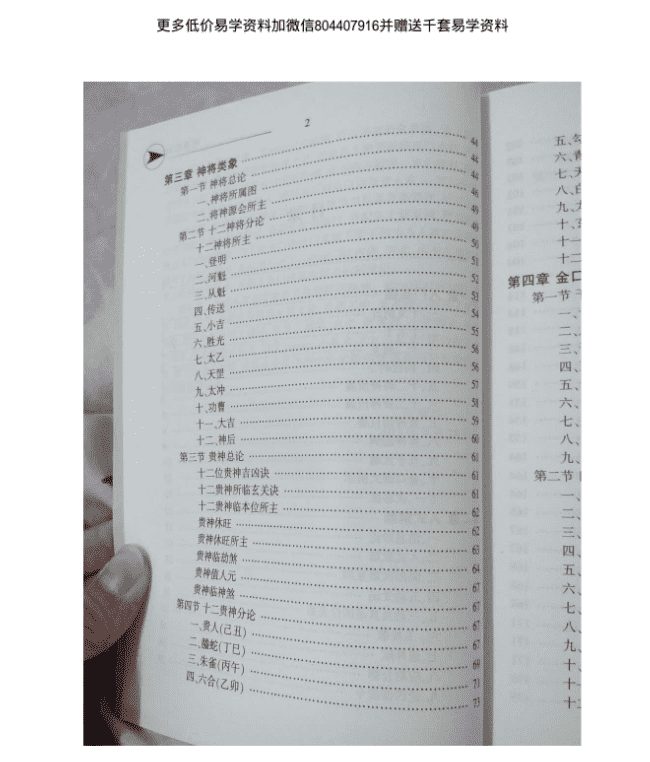 更多低价易学资料加微信804407916并赠送千套易学资料
2
第三章 神将类象 44
第一节 神将总论 44
一、神将所属图 44
二、将神源会所主 46
第二节 十二神将分论 49
十二神将所主 49
一、登明 50
二、河魁 51
三、从魁 52
四、传送 53
五、小吉 54
六、胜光 55
七、太乙 56
八、天罡 56
九、太冲 57
十、功曹 58
十一、大吉 59
十二、神后 60
第三节 贵神总论 61
十二位贵神吉凶诀 61
十二贵神所临玄关诀 61
十二贵神临本位所主 62
贵神休旺 62
贵神休旺所主 63
贵神临劫煞 64
贵神值人元 67
贵神临神煞 67
第四节 十二贵神分论 67
一、贵人(己丑) 67
二、螣蛇(丁巳) 69
三、朱雀(丙午) 71
四、六合(乙卯) 73
五、勾
六、青
七、天
八、白
九、
十、玄
十一
十二
第四章 金口
第一节
一、
二、
三、
四、
五、
六、
七、
八、
九、
第二节
一、
二、
三、
四、
五、
六、
七、
八、
九、
十、
十一
十二